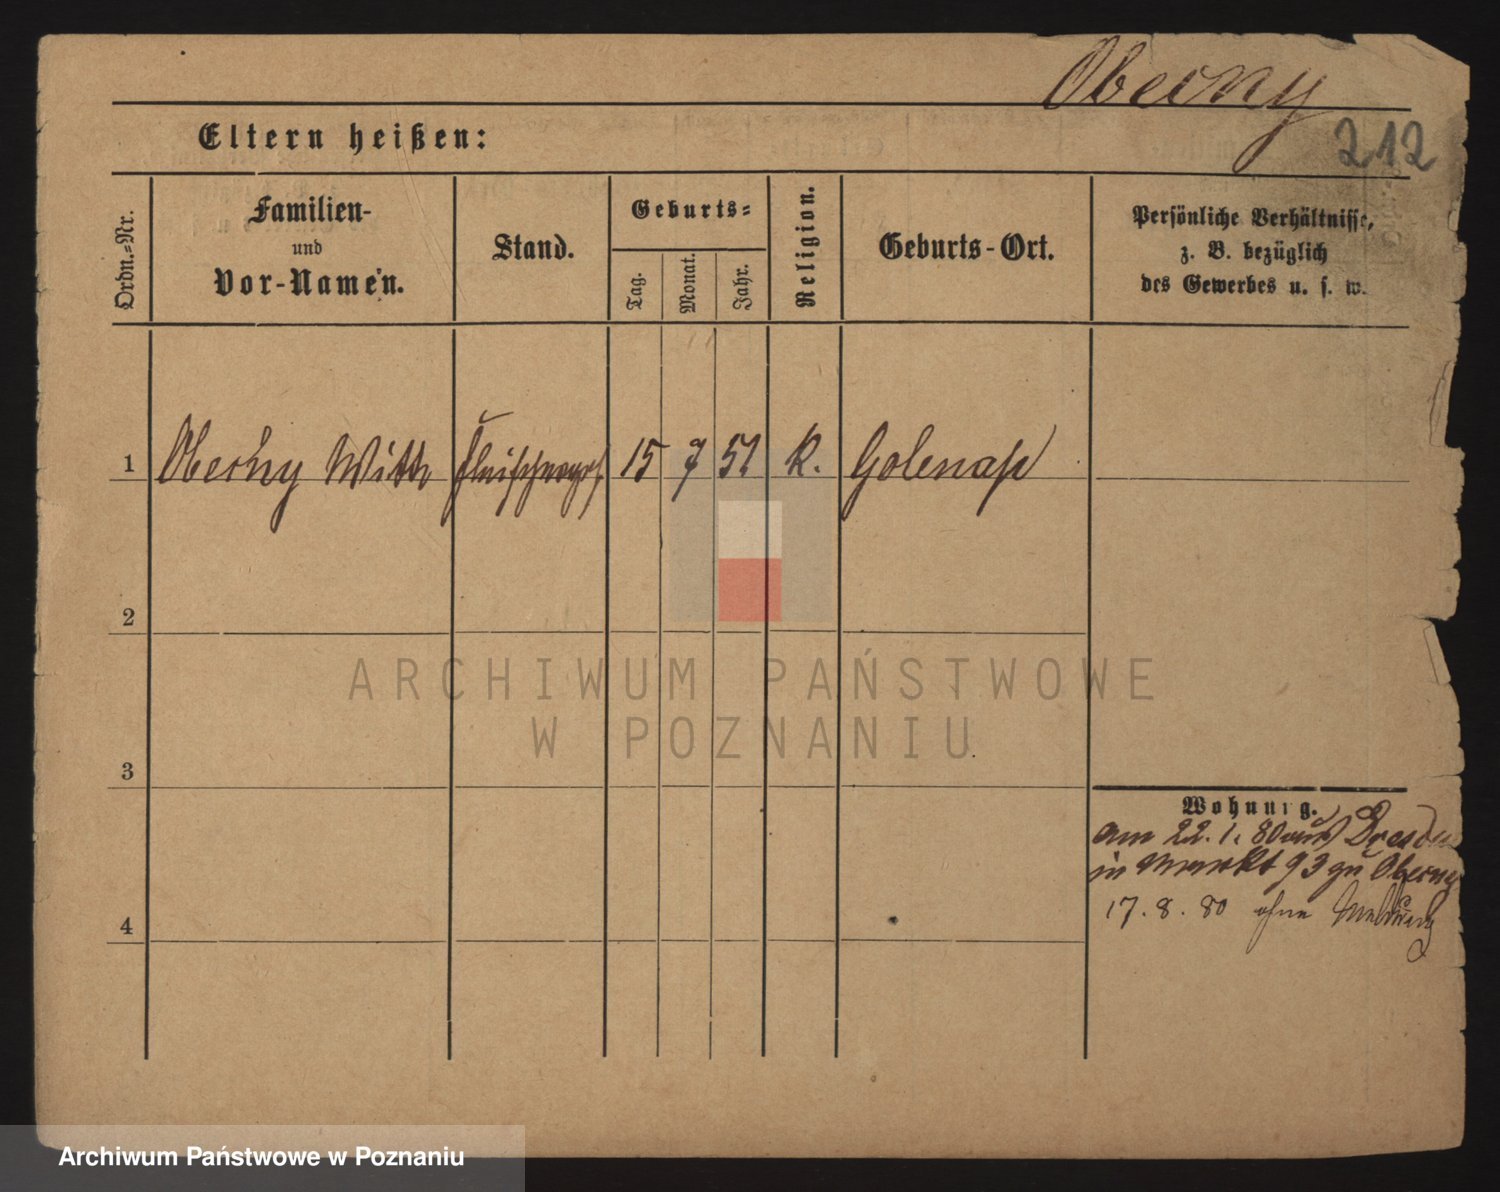 Oberny
212
Eltern heißen:
Ordn.=Nr.
Familien-
und
Vor-Namen.
Stand.
Geburts=
Tag.
Monat.
Jahr.
Religion.
Geburts-Ort.
Persönliche Verhältnisse,
z. B. bezüglich
des Gewerbes u. s. w.
1
Oberny 15 7 51 K.
2
3
4
Wohnung.
am 22.1.80 aus Dresden
in Markt 93 zu Oberny
17.8.80 ohne Meldung
ARCHIWUM PAŃSTWOWE
W POZNANIU
Archiwum Państwowe w Poznaniu